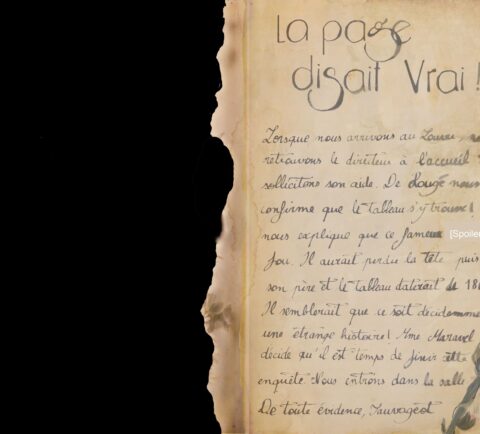 La page
disait Vrai !
Lorsque nous arrivons au Louvre,
retrouvons le directeur à l'accueil
sollicitons son aide. De Rougé nous
confirme que le tableau s'y trouve !
nous explique que ce fameux [Spoiler
fou. Il aurait perdu la tête puis
son père et le tableau daterait de 18
Il semblerait que ce soit décidemme
une étrange histoire ! Mme Maravel
décide qu'il est temps de finir cette
enquête. Nous entrons dans la salle
De toute évidence, Sauvageot